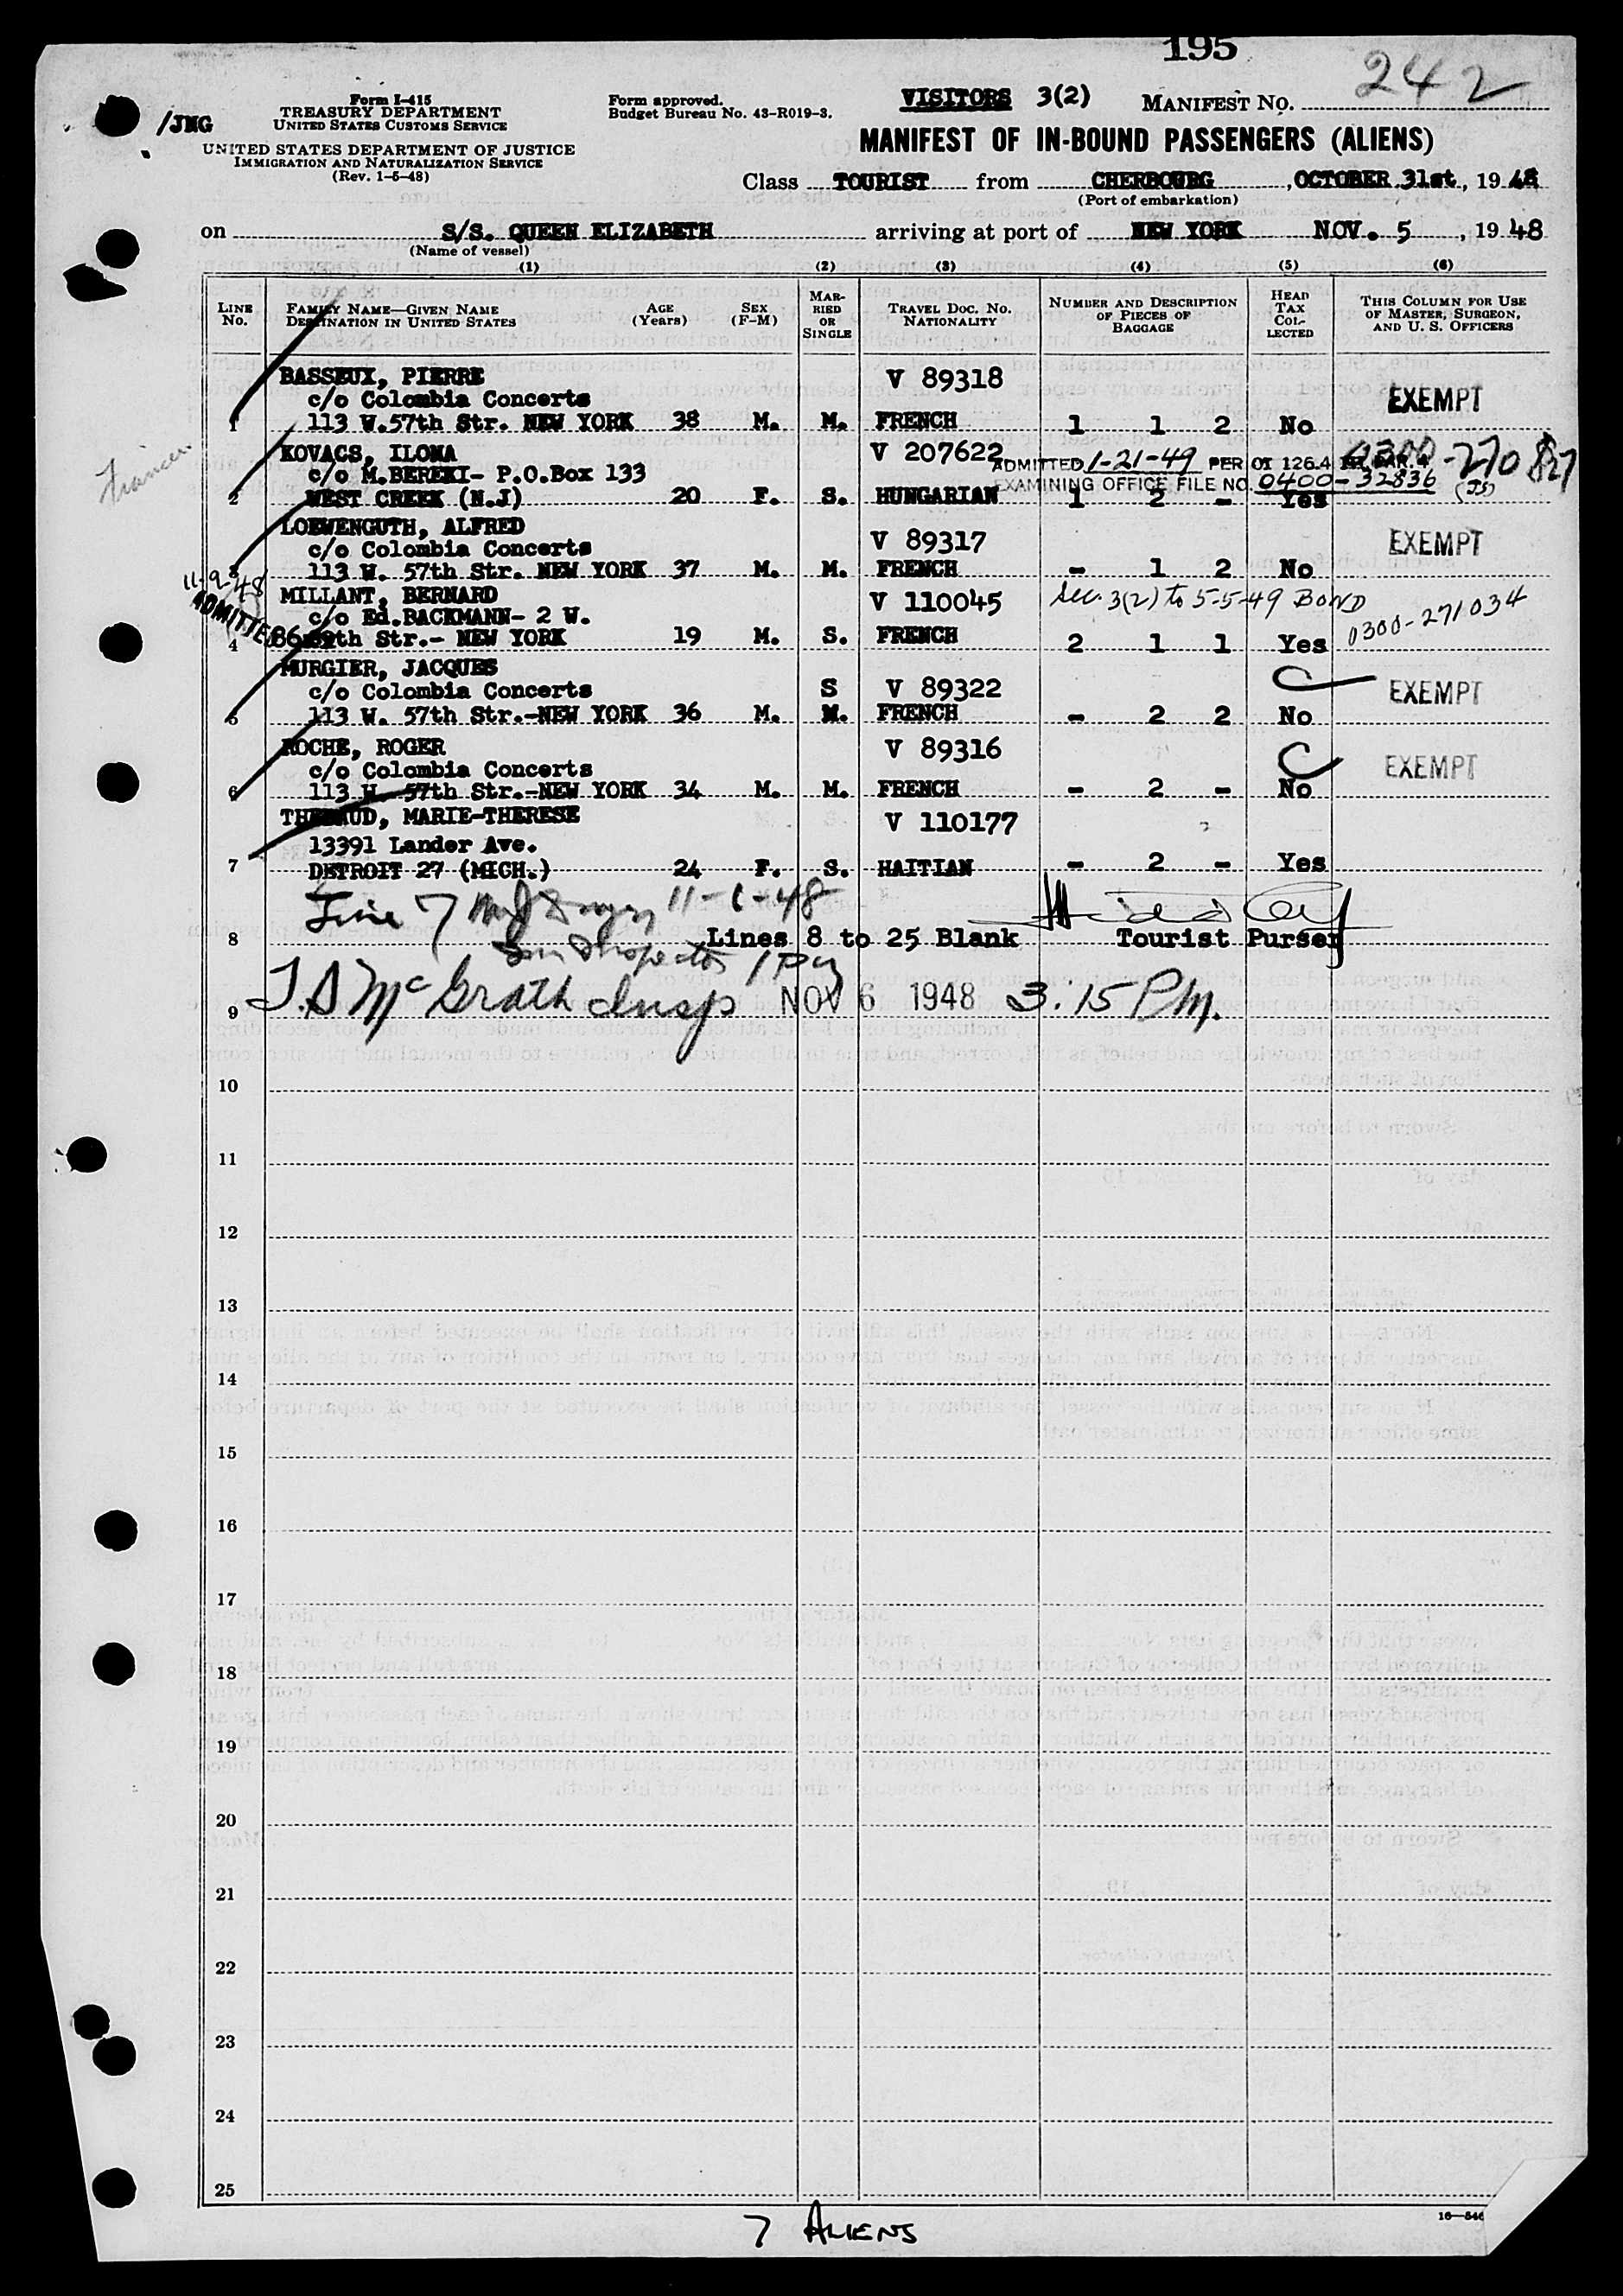 195
242
/JNG
Form I-415
TREASURY DEPARTMENT
UNITED STATES CUSTOMS SERVICE
UNITED STATES DEPARTMENT OF JUSTICE
IMMIGRATION AND NATURALIZATION SERVICE
(Rev. 1-5-48)
Form approved.
Budget Bureau No. 43-R019-3.
VISITORS 3(2) MANIFEST No.
MANIFEST OF IN-BOUND PASSENGERS (ALIENS)
Class TOURIST from CHERBOURG, OCTOBER 31st, 1948
(Port of embarkation)
on S/S. QUEEN ELIZABETH arriving at port of NEW YORK NOV. 5, 1948
(Name of vessel)
(1) (2) (3) (4) (5) (6)
LINE No. FAMILY NAME—GIVEN NAME DESTINATION IN UNITED STATES AGE (Years) SEX (F-M) MARRIED OR SINGLE TRAVEL DOC. NO. NATIONALITY NUMBER AND DESCRIPTION OF PIECES OF BAGGAGE HEAD TAX COLLECTED THIS COLUMN FOR USE OF MASTER, SURGEON, AND U. S. OFFICERS
BASSEUX, PIERRE V 89318
c/o Colombia Concerts EXEMPT
1 113 W.57th Str. NEW YORK 38 M. M. FRENCH 1 1 2 No
KOVACS, ILONA V 207622 0300-270827
c/o M.BEREKI- P.O.Box 133 ADMITTED 1-21-49 PER OI 126.4 PAR. 4
EXAMINING OFFICE FILE NO. 0400-32836 (JS)
2 WEST CREEK (N.J) 20 F. S. HUNGARIAN 1 2 - Yes
LOEWENGUTH, ALFRED V 89317
c/o Colombia Concerts EXEMPT
3 113 W. 57th Str. NEW YORK 37 M. M. FRENCH - 1 2 No
11-9-48 ADMITTED
MILLANT, BERNARD V 110045 Sec. 3(2) to 5-5-49 BOND
c/o Ed.BACKMANN- 2 W. 0300-271034
4 86th Str.- NEW YORK 19 M. S. FRENCH 2 1 1 Yes
MURGIER, JACQUES
c/o Colombia Concerts S V 89322 EXEMPT
5 113 W. 57th Str.-NEW YORK 36 M. M. FRENCH - 2 2 No
ROCHE, ROGER V 89316
c/o Colombia Concerts EXEMPT
6 113 W. 57th Str.-NEW YORK 34 M. M. FRENCH - 2 - No
THEBAUD, MARIE-THERESE V 110177
13391 Lander Ave.
7 DETROIT 27 (MICH.) 24 F. S. HAITIAN - 2 - Yes
Line 7 11-6-48
8 Lines 8 to 25 Blank Tourist Purser
9 McGrath Insp NOV 6 1948 3:15 PM.
10
11
12
13
14
15
16
17
18
19
20
21
22
23
24
25
7 ALIENS